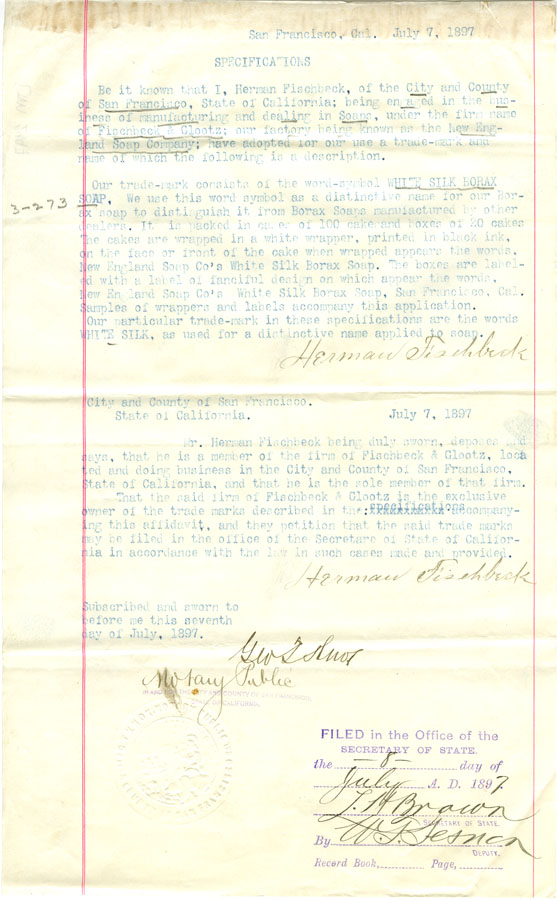 San Francisco, Cal. July 7, 1897
SPECIFICATIONS
Be it known that I, Herman Fischbeck, of the City and County
of San Francisco, State of California; being engaged in the bus-
iness of manufacturing and dealing in Soaps, under the firm name
of Fischbeck & Glootz; our factory being known as the New Eng-
land Soap Company; have adopted for our use a trade-mark and
name of which the following is a description.
Our trade-mark consists of the word-symbol WHITE SILK BORAX
3-273
SOAP, We use this word symbol as a distinctive name for our Bor-
ax soap to distinguish it from Borax Soaps manufactured by other
dealers. It is packed in cases of 100 cakes and boxes of 20 cakes
the cakes are wrapped in a white wrapper, printed in black ink,
on the face or front of the cake when wrapped appears the words,
New England Soap Co's White Silk Borax Soap. The boxes are label-
ed with a label of fanciful design on which appear the words,
New England Soap Co's White Silk Borax Soap, San Francisco, Cal.
Samples of wrappers and labels accompany this application.
Our particular trade-mark in these specifications are the words
WHITE SILK, as used for a distinctive name applied to soap.
Herman Fischbeck
City and County of San Francisco.
State of California. July 7, 1897
Mr. Herman Fischbeck being duly sworn, deposes and
says, that he is a member of the firm of Fischbeck & Glootz, loca
ted and doing business in the City and County of San Francisco,
State of California, and that he is the sole member of that firm.
That the said firm of Fischbeck & Glootz is the exclusive
owner of the trade marks described in the specifications accompany-
ing this affidavit, and they petition that the said trade marks
may be filed in the office of the Secretare of State of Califor-
nia in accordance with the law in such cases made and provided.
Herman Fischbeck
Subscribed and sworn to
before me this seventh
day of July, 1897.
Geo T Knox
Notary Public
IN AND FOR THE CITY AND COUNTY OF SAN FRANCISCO,
STATE OF CALIFORNIA.
FILED in the Office of the
SECRETARY OF STATE.
the 8 day of
July A. D. 1897.
L. H. Brown
SECRETARY OF STATE.
By
DEPUTY.
Record Book, Page,